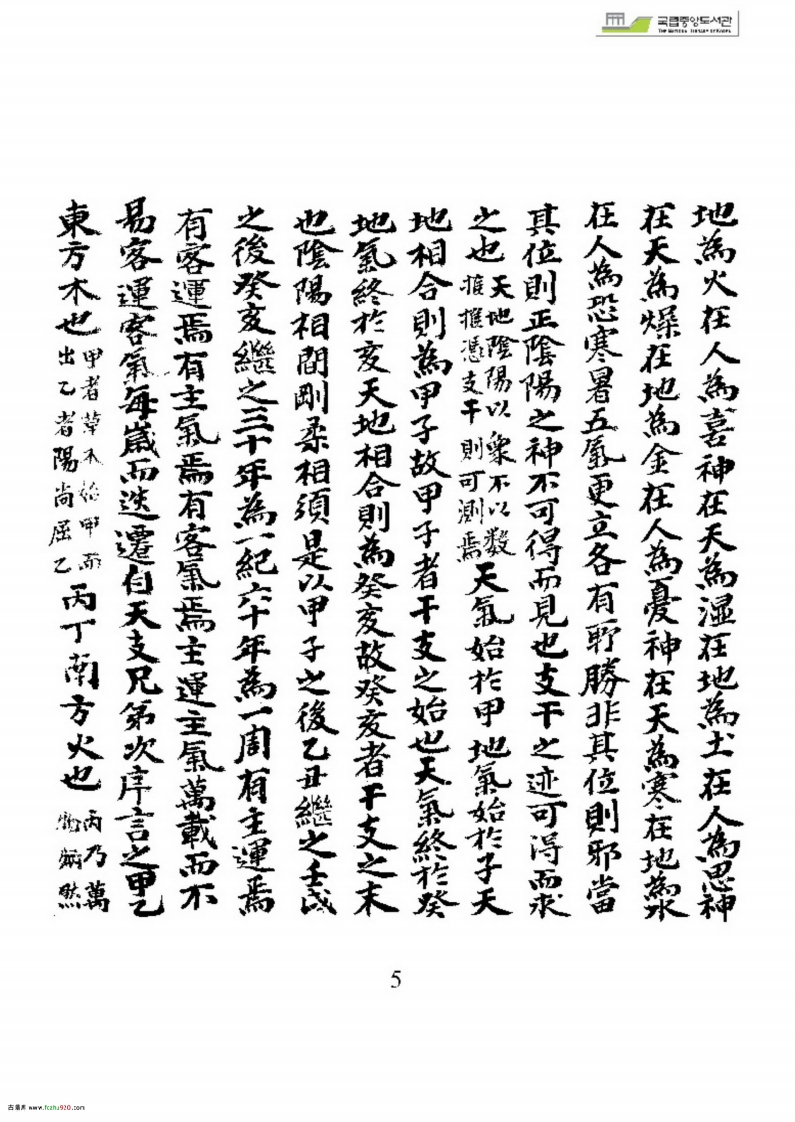 국립중앙도서관
THE NATIONAL LIBRARY OF KOREA
地為火在人為喜神在天為湿在地為土在人為思神
在天為燥在地為金在人為憂神在天為寒在地為水
在人為恐寒暑五氣更立各有所勝非其位則邪當
其位則正陰陽之神不可得而見也支干之迹可得而求
之也天地陰陽以象不以数推擢憑支干則可測焉天氣始於甲地氣始於子天
地相合則為甲子故甲子者干支之始也天氣終於癸
地氣終於亥天地相合則為癸亥故癸亥者干支之末
也陰陽相間剛柔相須是以甲子之後乙丑繼之壬戌
之後癸亥繼之三十年為一紀六十年為一周有主運焉
有客運焉有主氣焉有客氣焉主運主氣萬載而不
易客運客氣每嵗而迭遷自天支兄弟次序言之甲乙
東方木也甲者草木始甲而出乙者陽尚屈乙丙丁南方火也丙乃萬物炳然
5
古籍库 www.fozhu920.com